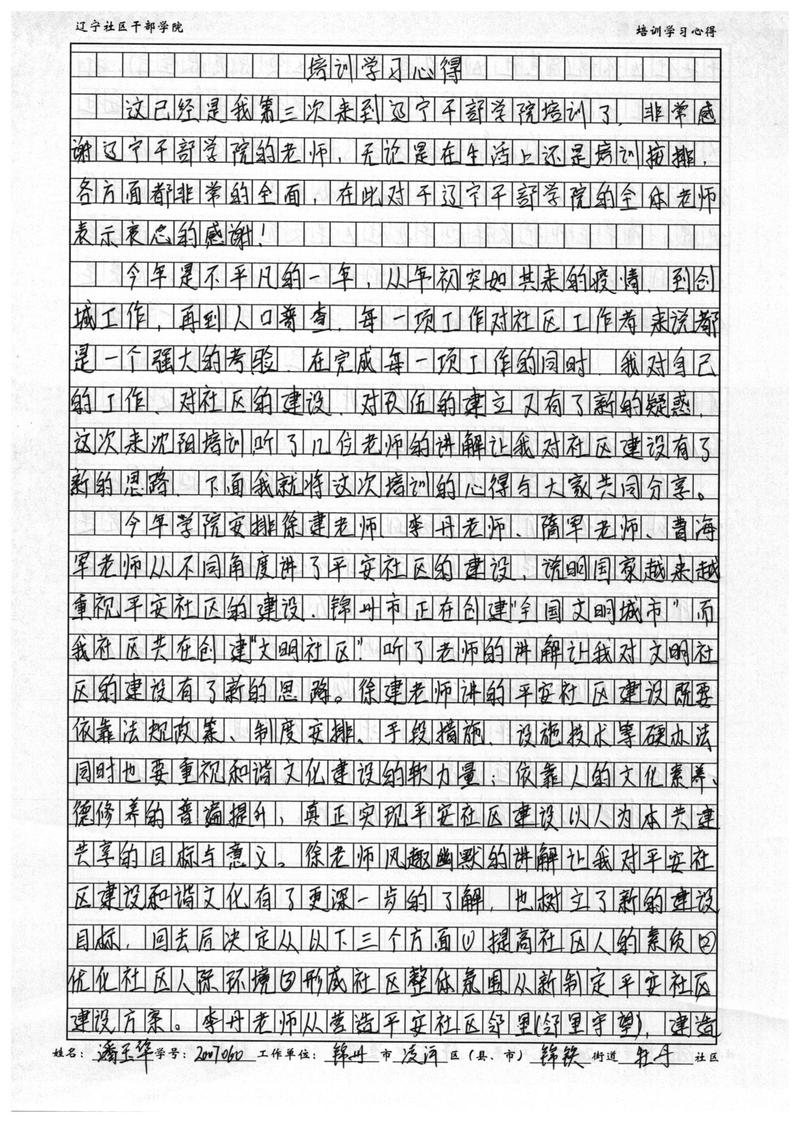 辽宁社区干部学院 培训学习心得
培训学习心得
这已经是我第三次来到辽宁干部学院培训了，非常感
谢辽宁干部学院的老师，无论是在生活上还是培训安排，
各方面都非常的全面，在此对于辽宁干部学院的全体老师
表示衷心的感谢！
今年是不平凡的一年，从年初突如其来的疫情，到创
城工作，再到人口普查，每一项工作对社区工作者来说都
是一个强大的考验，在完成每一项工作的同时，我对自己
的工作，对社区的建设，对队伍的建立又有了新的疑惑，
这次来沈阳培训听了几位老师的讲解让我对社区建设有了
新的思路，下面我就将这次培训的心得与大家共同分享。
今年学院安排徐建老师、李丹老师、隋军老师、曹海
军老师从不同角度讲了平安社区的建设，说明国家越来越
重视平安社区的建设，锦州市正在创建“全国文明城市”而
我社区共在创建“文明社区”听了老师的讲解让我对文明社
区的建设有了新的思路。徐建老师讲的平安社区建设既要
依靠法规政策、制度安排、手段措施、设施技术等硬办法
同时也要重视和谐文化建设的软力量；依靠人的文化素养、
德修养的普遍提升，真正实现平安社区建设以人为本共建
共享的目标与意义。徐老师风趣幽默的讲解让我对平安社
区建设和谐文化有了更深一步的了解，也树立了新的建设
目标，回去后决定从以下三个方面①提高社区人的素质②
优化社区人际环境③形成社区整体氛围从新制定平安社区
建设方案。李丹老师从营造平安社区邻里(邻里守望)，建造
姓名：潘玉华 学号：2007060 工作单位：锦州 市 凌河 区（县、市） 锦铁 街道 牡丹 社区